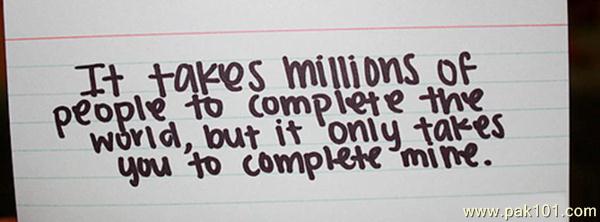 It takes millions of
people to complete the
world, but it only takes
you to complete mine.
www.pak101.com